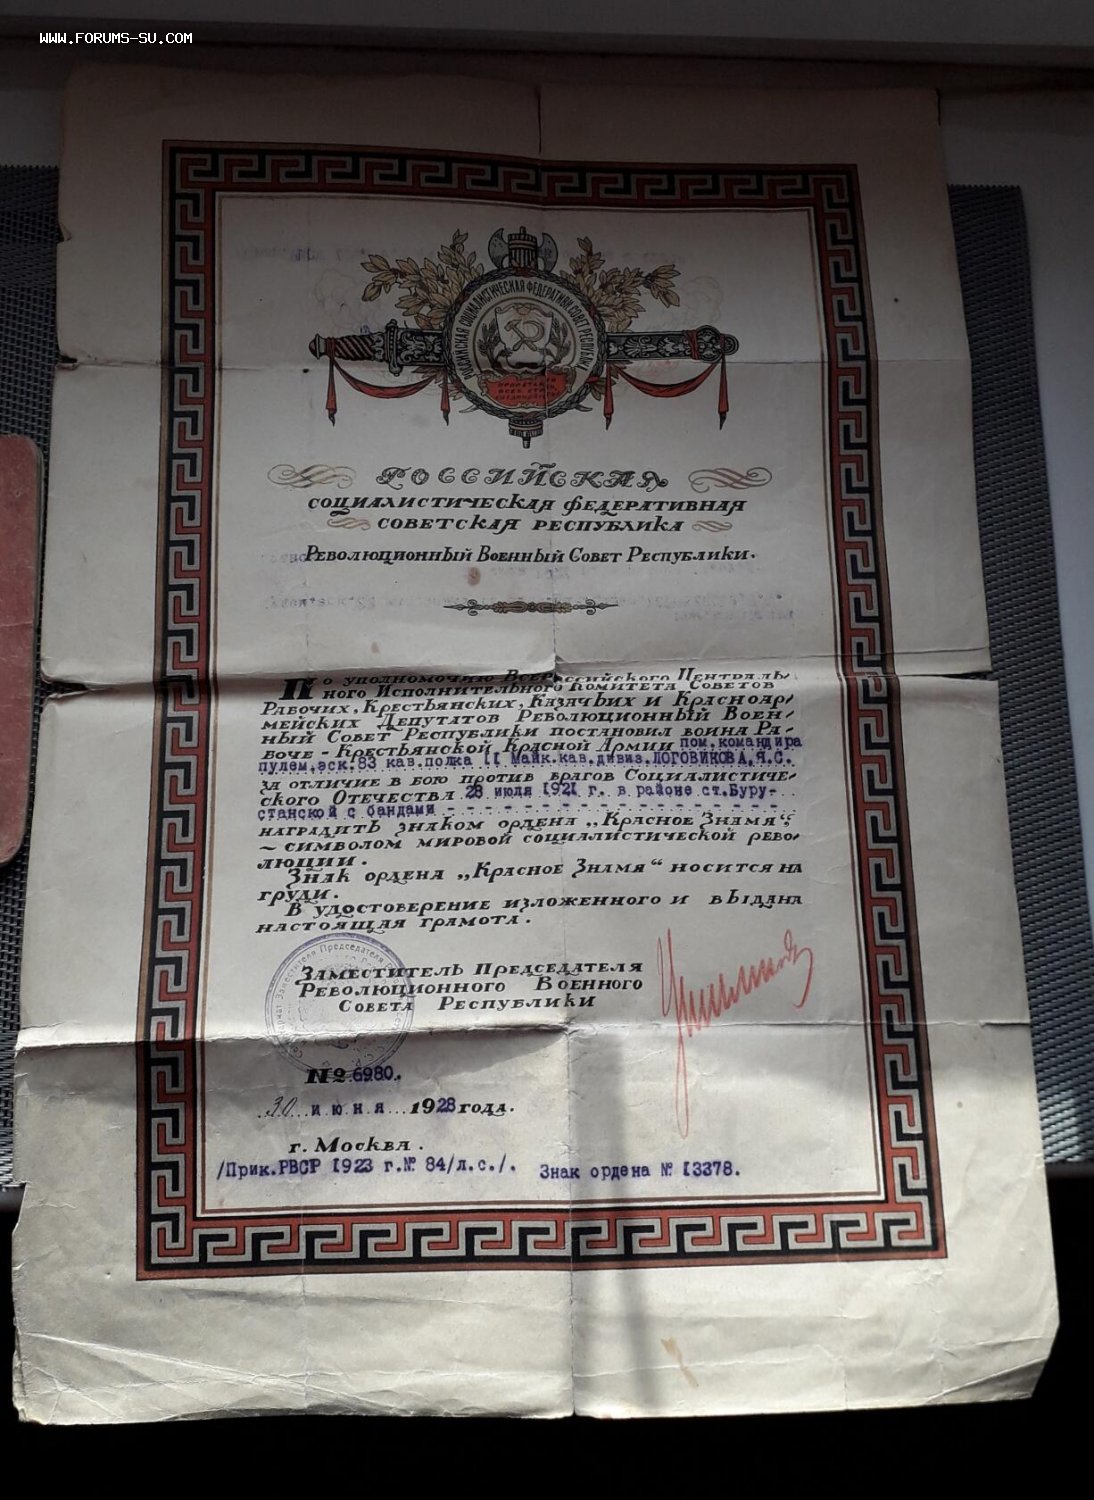 WWW.FORUMS-SU.COM
РОССИЙСКАЯ СОЦИАЛИСТИЧЕСКАЯ ФЕДЕРАТИВН. СОВЕТ. РЕСПУБЛИКА
ПРОЛЕТАРИИ
ВСЕХ СТРАН
СОЕДИНЯЙТЕСЬ
РОССИЙСКАЯ
СОЦИАЛИСТИЧЕСКАЯ ФЕДЕРАТИВНАЯ
СОВЕТСКАЯ РЕСПУБЛИКА
РЕВОЛЮЦИОННЫЙ ВОЕННЫЙ СОВЕТ РЕСПУБЛИКИ.
ПО УПОЛНОМОЧИЮ ВСЕРОССИЙСКОГО ЦЕНТРАЛЬ-
НОГО ИСПОЛНИТЕЛЬНОГО КОМИТЕТА СОВЕТОВ
РАБОЧИХ, КРЕСТЬЯНСКИХ, КАЗАЧЬИХ И КРАСНОАР-
МЕЙСКИХ ДЕПУТАТОВ РЕВОЛЮЦИОННЫЙ ВОЕН-
НЫЙ СОВЕТ РЕСПУБЛИКИ ПОСТАНОВИЛ ВОИНА РА-
БОЧЕ-КРЕСТЬЯНСКОЙ КРАСНОЙ АРМИИ пом.командира
пулем.эск.83 кав.полка II Майк.кав.дивиз.ЛОГОВИКОВА.Я.С.
ЗА ОТЛИЧИЕ В БОЮ ПРОТИВ ВРАГОВ СОЦИАЛИСТИЧЕ-
СКОГО ОТЕЧЕСТВА 28 июля 1921 г. в районе ст.Буру-
станской с бандами - - - - - - - - - - - - - - - -
НАГРАДИТЬ ЗНАКОМ ОРДЕНА „КРАСНОЕ ЗНАМЯ“,
~ СИМВОЛОМ МИРОВОЙ СОЦИАЛИСТИЧЕСКОЙ РЕВО-
ЛЮЦИИ.
ЗНАК ОРДЕНА „КРАСНОЕ ЗНАМЯ“ НОСИТСЯ НА
ГРУДИ.
В УДОСТОВЕРЕНИЕ ИЗЛОЖЕННОГО И ВЫДАНА
НАСТОЯЩАЯ ГРАМОТА.
Заместителя Председателя
ЗАМЕСТИТЕЛЬ ПРЕДСЕДАТЕЛЯ
РЕВОЛЮЦИОННОГО ВОЕННОГО
СОВЕТА РЕСПУБЛИКИ
№ 6980.
30 июня 1928 года.
г. МОСКВА.
/Прик.РВСР 1923 г.№ 84/л.с./. Знак ордена № 13378.